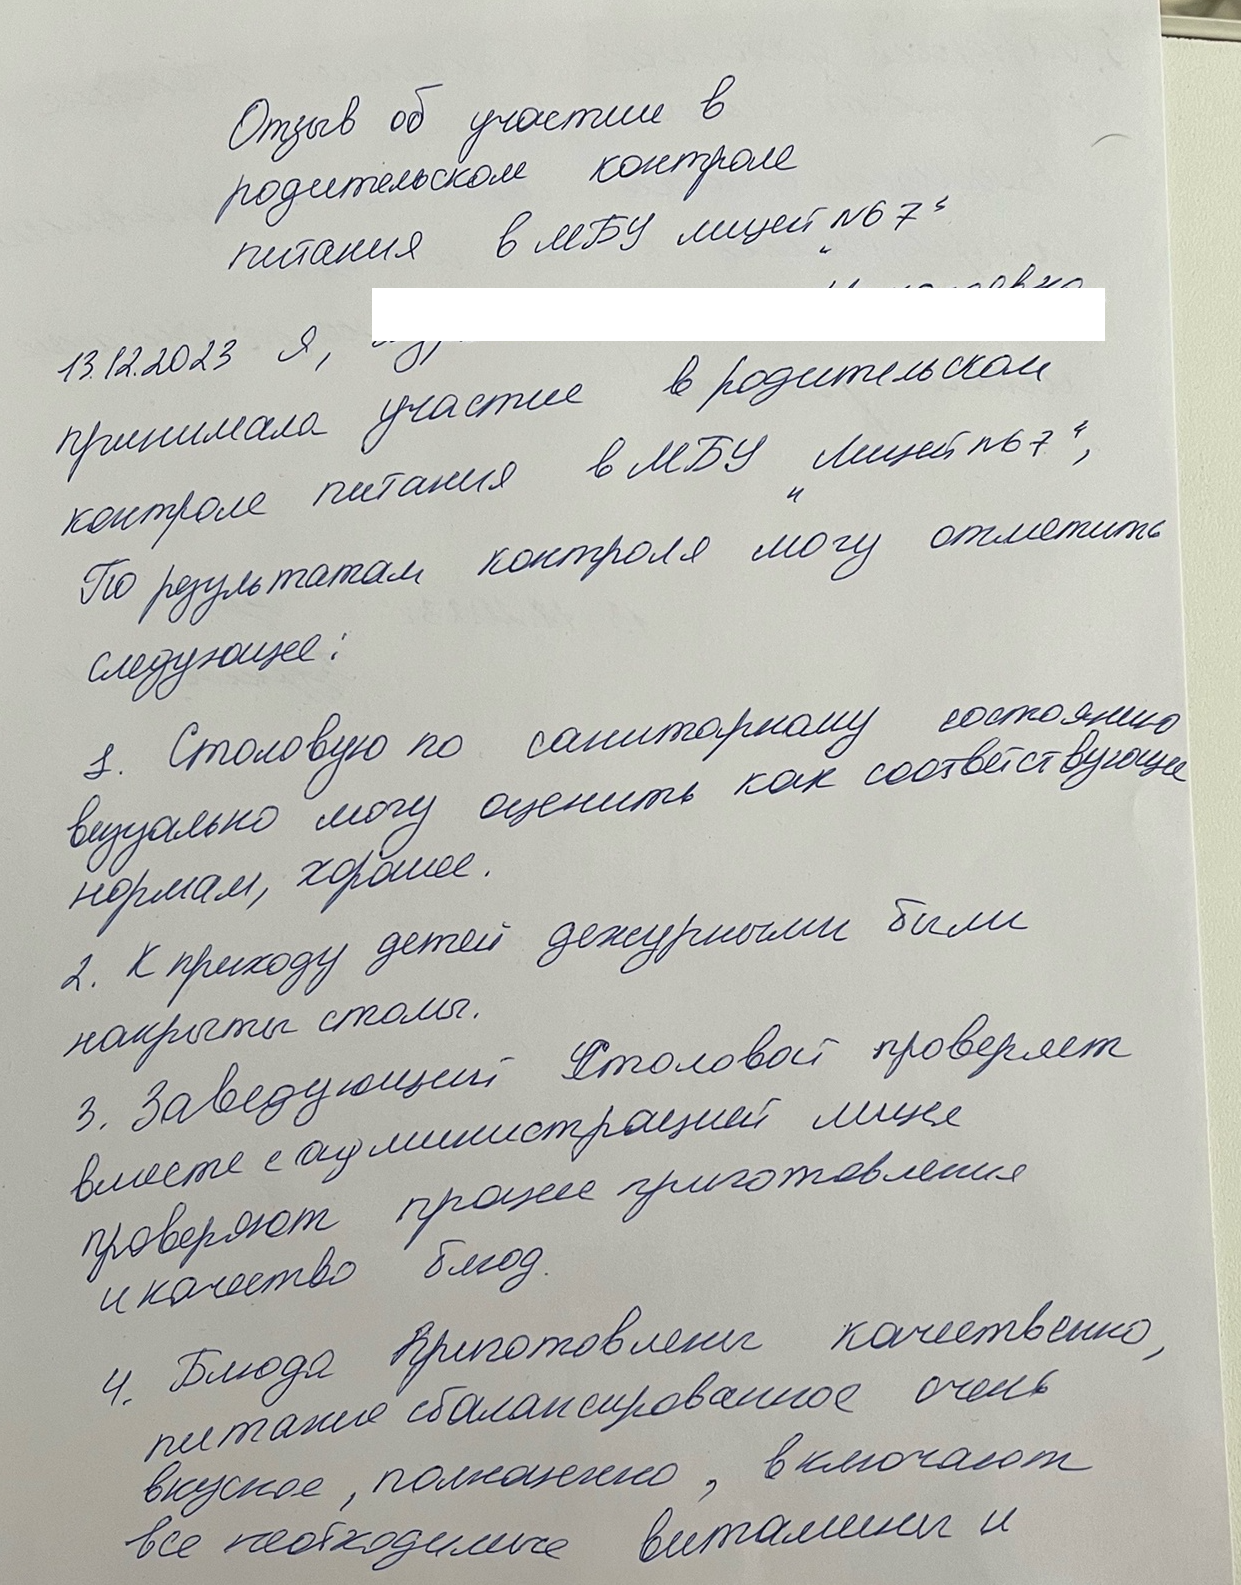 Отзыв об участие в
родительском контроле
питания в МБУ лицей "№67"
13.12.2023 Я,
принимала участие в родительском
контроле питания в МБУ "Лицей №67",
По результатам контроля могу отметить
следующее:
1. Столовую по санитарному состоянию
визуально могу оценить как соответствующее
нормам, хорошее.
2. К приходу детей дежурными были
накрыты столы.
3. Заведующей Столовой проверяет
вместе с администрацией лицея
проверяют процесс приготовления
и качество блюд.
4. Блюда Приготовлены качественно,
питание сбалансированное очень
вкусное, полноценно, включают
все необходимые витамины и